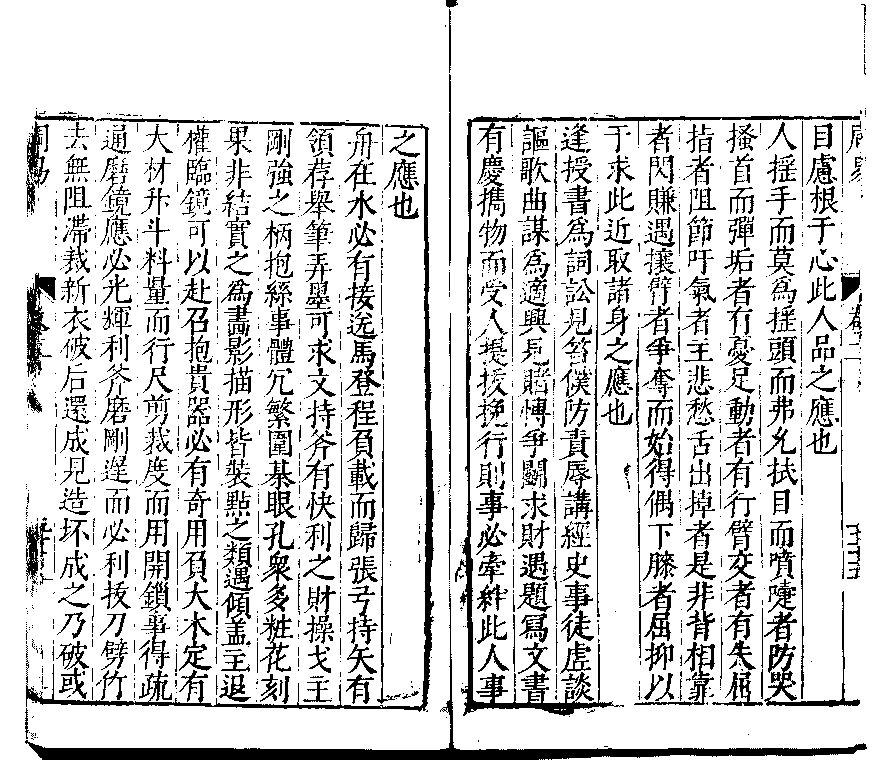 目慮根于心此人品之應也
人揺手而莫為揺頭而弗允拭目而噴嚏者防哭
搔首而彈垢者有憂足動者有行臂交者有失屈
指者阻節吁氣者主悲愁舌出掉者是非背相靠
者閃賺遇攘臂者爭奪而始得偶下膝者屈抑以
于求此近取諸身之應也
逢授書為詞訟見笞僕防責辱講經史事徒虛談
謳歌曲謀為適興見賭博爭鬭求財遇題寫文書
有慶擕物而受人提拔挽行則事必牽絆此人事
之應也
舟在水必有接远馬登程負載而歸張弓持矢有
領荐舉筆弄墨可求文持斧有快利之財操戈主
剛強之柄抱絲事體冗繁圍棊眼孔衆多粧花刻
果非結實之為畵影描形皆裝點之類遇傾盖主退
權臨鏡可以赴召抱貴器必有奇用負大木定有
大材升斗料量而行尺剪裁度而用開鎖事得疏
通磨鏡應必光輝利斧磨剛遲而必利拔刀劈竹
去無阻滯裁新衣破后還成見造坏成之乃破或